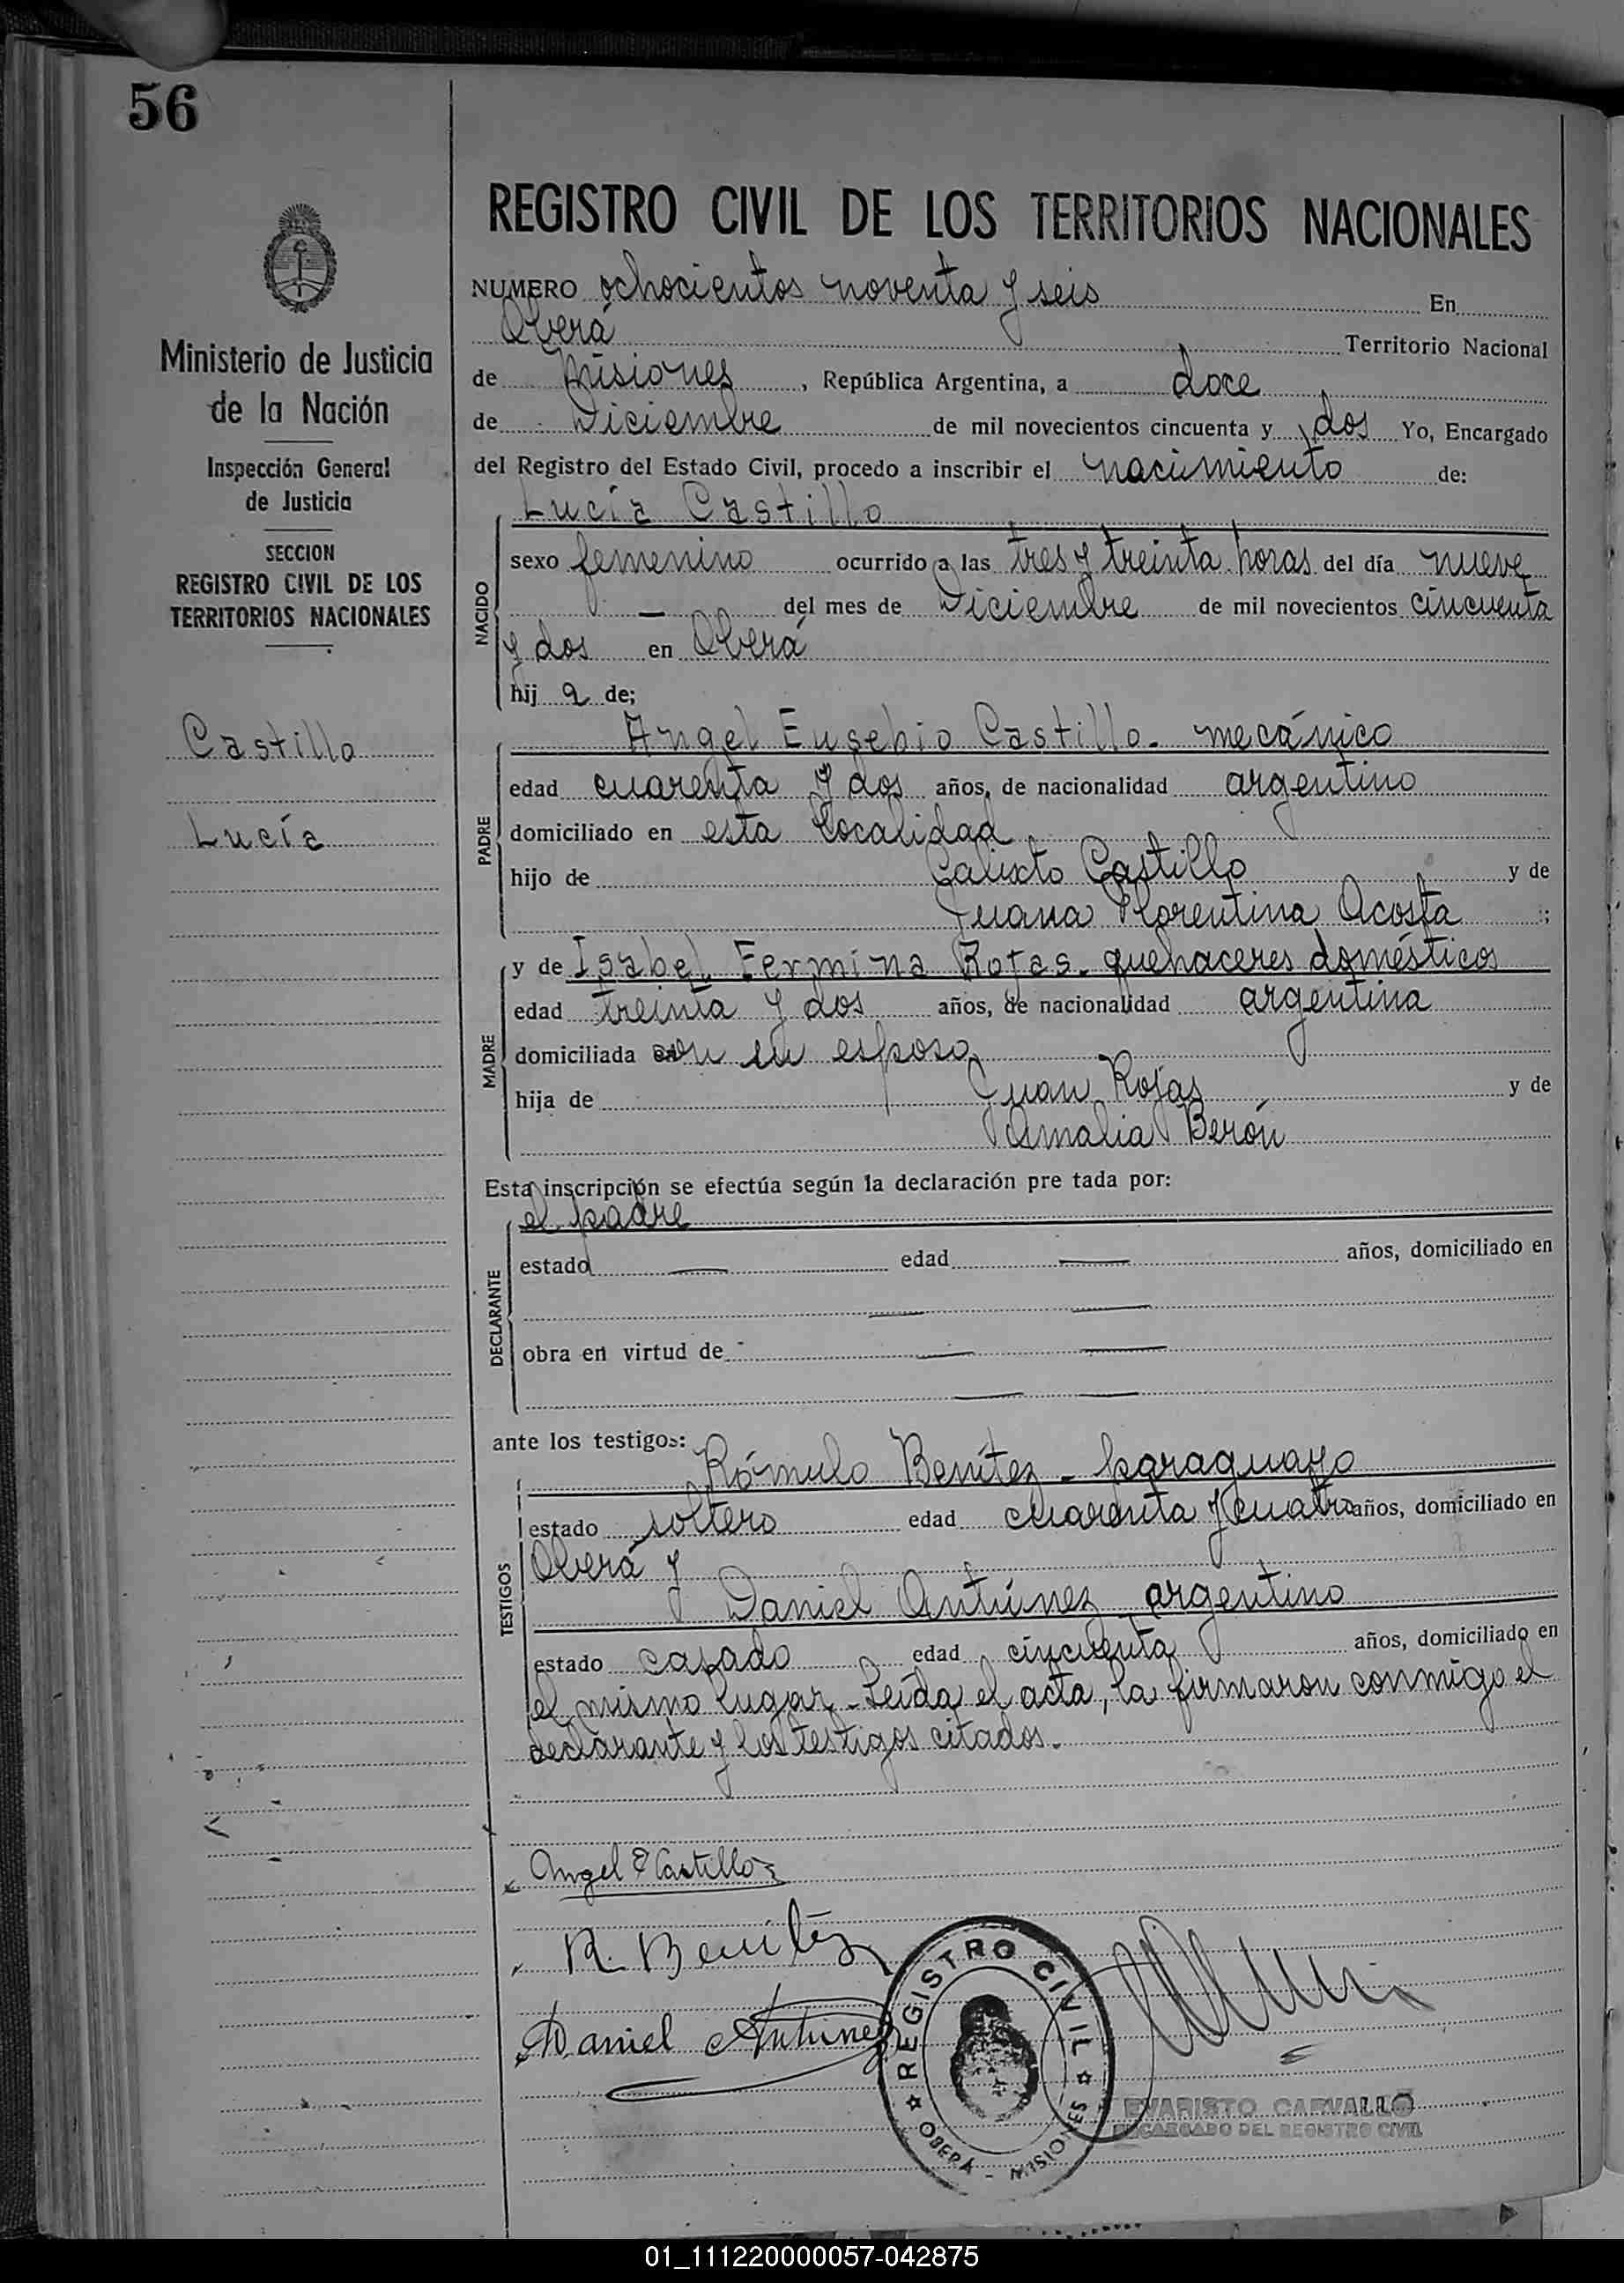 56
Ministerio de Justicia
de la Nación
Inspección General
de Justicia
SECCION
REGISTRO CIVIL DE LOS
TERRITORIOS NACIONALES
Castillo
Lucía
REGISTRO CIVIL DE LOS TERRITORIOS NACIONALES
NUMERO ochocientos noventa y seis En
Oberá Territorio Nacional
de Misiones, República Argentina, a doce
de Diciembre de mil novecientos cincuenta y dos Yo, Encargado
del Registro del Estado Civil, procedo a inscribir el nacimiento de:
Lucía Castillo
NACIDO
sexo femenino ocurrido a las tres y treinta horas del día nueve
— del mes de Diciembre de mil novecientos cincuenta
y dos en Oberá
hij a de;
Angel Eusebio Castillo - mecánico
PADRE
edad cuarenta y dos años, de nacionalidad argentino
domiciliado en esta localidad
hijo de Calixto Castillo y de
Juana Florentina Acosta ;
y de Isabel Fermina Rojas - quehaceres domésticos
MADRE
edad treinta y dos años, de nacionalidad argentina
domiciliada con su esposo
hija de Juan Rojas y de
Amalia Berón
Esta inscripción se efectúa según la declaración pre tada por:
el padre
DECLARANTE
estado — edad — años, domiciliado en
— —
obra en virtud de — —
— —
ante los testigos:
Rómulo Benítez - paraguayo
TESTIGOS
estado soltero edad cuarenta y cuatro años, domiciliado en
Oberá y
Daniel Antúnez argentino
estado casado edad cincuenta años, domiciliado en
el mismo lugar - Leída el acta, la firmaron conmigo el
declarante y los testigos citados.
Angel E Castillo
R. Benítez
Daniel Antunez
REGISTRO CIVIL
OBERÁ - MISIONES
EVARISTO CARVALLO
ENCARGADO DEL REGISTRO CIVIL
01_111220000057-042875